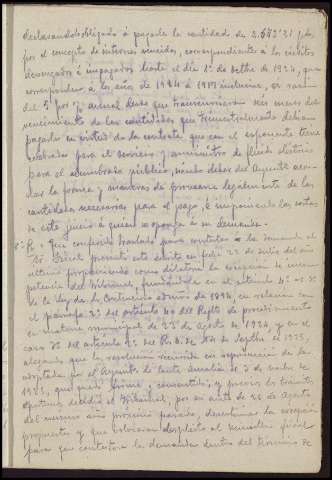 declarandole obligado á pagarle la cantidad de 2.642'31 pts.
por el concepto de intereses vencidos, correspondiente á los créditos
devengados é impagados desde el día 1º de del 1924, que
corresponden á los años de 1924 á 1929 inclusive, en razón
del 5 por % anual desde que transcurrieron dos meses del
vencimiento de las cantidades que trimestralmente debían
pagarle en virtud de la contrata, que con el exponente tiene
celebrada para el servicio y suministro de fluido eléctrico
para el alumbrado público, siendo deber del Ayuntº
la forma y manera de proveerse legalmente de las
cantidades necesarias para el pago, é imponiendo las costas
de este juicio á quien se oponga á su demanda.
R. Que conferido traslado para contestar la demanda al
Sr. Fiscal presentó este escrito en fecha 22 de Julio del año
último proponiendo como dilatoria la excepción de incom-
petencia del Tribunal, fundándola en el artículo 4º
de la ley de lo Contencioso admvo de 1894, en relación con
el párrafo 2º del artículo 40 del Regltº de procedimiento
en materia municipal de 23 de Agosto de 1924 y en el
caso 3º del artículo del R.D. de de Septbre de 1925,
alegando que la resolución recurrida es reproducción de la
adoptada por el Ayuntº de Santa Amalia de 2 de
1925, que quedó firme y consentida; y previos los trámites
oportunos decidió el Tribunal, por su auto de 26 de Agosto
del mismo año próximo pasado, desestimar la excepción
propuesta y que volvieran despacho al Ministerio fiscal
para que contestara la demanda dentro del término de